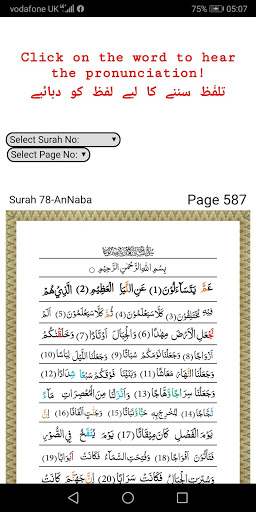 vodafone UK 75% 05:07
Click on the word to hear
the pronunciation!
تلفّظ سننے کا لیے لفظ کو دبائیے
Select Surah No:
Select Page No:
Surah 78-AnNaba Page 587
بِسْمِ اللهِ الرَّحْمٰنِ الرَّحِيْمِ ○
عَمَّ يَتَسَآءَلُوْنَ (1) عَنِ النَّبَاِ الْعَظِيْمِ (2) الَّذِيْ هُمْ
فِيْهِ مُخْتَلِفُوْنَ (3) كَلَّا سَيَعْلَمُوْنَ (4) ثُمَّ كَلَّا سَيَعْلَمُوْنَ (5) اَلَمْ
نَجْعَلِ الْاَرْضَ مِهٰدًا (6) وَالْجِبَالَ اَوْتَادًا (7) وَخَلَقْنٰكُمْ
اَزْوَاجًا (8) وَجَعَلْنَا نَوْمَكُمْ سُبَاتًا (9) وَجَعَلْنَا الَّيْلَ لِبَاسًا (10)
وَجَعَلْنَا النَّهَارَ مَعَاشًا (11) وَبَنَيْنَا فَوْقَكُمْ سَبْعًا شِدَادًا (12)
وَجَعَلْنَا سِرَاجًا وَّهَّاجًا (13) وَاَنْزَلْنَا مِنَ الْمُعْصِرَاتِ مَآءً
ثَجَّاجًا (14) لِنُخْرِجَ بِهٖ حَبًّا وَّنَبَاتًا (15) وَجَنّٰتٍ اَلْفَافًا (16) اِنَّ
يَوْمَ الْفَصْلِ كَانَ مِيْقَاتًا (17) يَوْمَ يُنْفَخُ فِي الصُّوْرِ
فَتَاْتُوْنَ اَفْوَاجًا (18) وَفُتِحَتِ السَّمَآءُ فَكَانَتْ اَبْوَابًا (19)
وَسُيِّرَتِ الْجِبَالُ فَكَانَتْ سَرَابًا (20) اِنَّ جَهَنَّمَ كَانَتْ